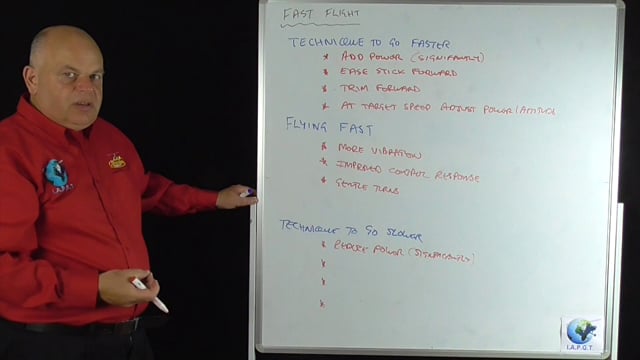 FAST FLIGHT
TECHNIQUE TO GO FASTER
* ADD POWER (SIGNIFICANTLY)
* EASE STICK FORWARD
* TRIM FORWARD
* AT TARGET SPEED ADJUST POWER/ATTITUDE
FLYING FAST
* MORE VIBRATION
* IMPROVED CONTROL RESPONSE
* GENTLE TURNS
TECHNIQUE TO GO SLOWER
* REDUCE POWER (SIGNIFICANTLY)
*
*
*
I.A.P.G.T.
I.A.P.G.T.